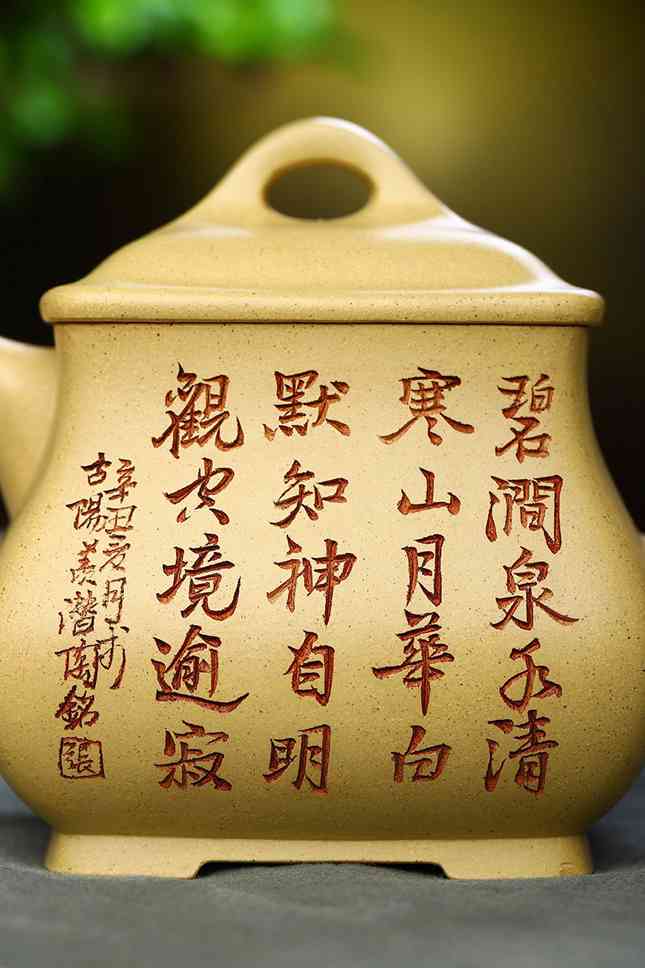 碧澗泉水清
寒山月華白
默知神自明
觀空境逾寂
辛丑夏月於
古陽羨潛陶銘
張